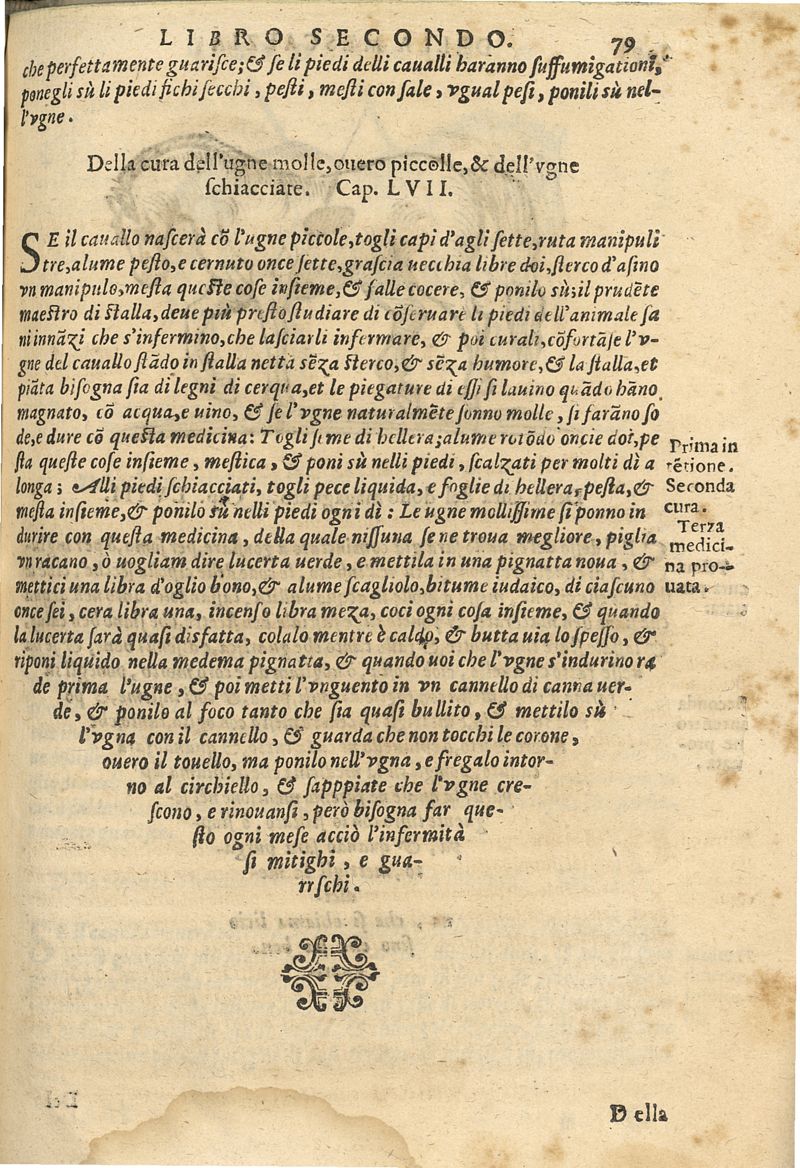 LIBRO SECONDO. 79
che perfettamente guariſce; & ſe li piedi delli caualli haranno ſuffumigationi,
ponegli sù li piedi fichi ſecchi, peſti, meſti con ſale, vgual peſi, ponili sù nel-
l'vgne.
Della cura dell'ugne molle, ouero piccole, & dell'vgne
ſchiacciate. Cap. LVII.
SE il cauallo naſcerà cõ l'ugne piccole, togli capi d'agli ſette, ruta manipuli
tre, alume peſto, e cernuto once ſette, graſcia uecchia libre doi, ſterco d'aſino
vn manipulo, meſta queſte coſe inſieme, & falle cocere, & ponilo sù; il prudẽte
maeſtro di ſtalla, deue più preſto ſtudiare di cõſeruare li piedi dell'animale ſa
ni innãzi che s'infermino, che laſciarli infermare, & poi curali, cõfortãſe l'v-
gne del cauallo ſtãdo in ſtalla netta sẽza ſterco, & sẽza humore, & la ſtalla, et
piãta biſogna ſia di legni di cerqua, et le piegature di eſſi ſi lauino quãdo hãno
magnato, cõ acqua, e uino, & ſe l'vgne naturalmẽte ſonno molle, ſi farãno ſo
de, e dure cõ queſta medicina: Togli ſeme di hellera; alume rotõdo oncie doi, pe
ſta queſte coſe inſieme, meſtica, & poni sù nelli piedi, ſcalzati per molti dì a
longa; Alli piedi ſchiacciati, togli pece liquida, e foglie di hellera, peſta, &
meſta inſieme, & ponilo sù nelli piedi ogni dì: Le ugne molliſſime ſi ponno in
durire con queſta medicina, della quale niſſuna ſe ne troua megliore, piglia
vn racano, ò uogliam dire lucerta uerde, e mettila in una pignatta noua, &
mettici una libra d'oglio bono, & alume ſcagliolo, bitume iudaico, di ciaſcuno
once ſei, cera libra una, incenſo libra meza, coci ogni coſa inſieme, & quando
la lucerta ſarà quaſi disfatta, colalo mentre è caldo, & butta uia lo ſpeſſo, &
riponi liquido nella medema pignatta, & quando uoi che l'vgne s'indurino ra
de prima l'ugne, & poi metti l'vnguento in vn cannello di canna uer-
de, & ponilo al foco tanto che ſia quaſi bullito, & mettilo sù
l'vgna con il cannello, & guarda che non tocchi le corone,
ouero il touello, ma ponilo nell'vgna, e fregalo intor-
no al circhiello, & ſapppiate che l'vgne cre-
ſcono, e rinouanſi, però biſogna far que-
ſto ogni meſe acciò l'infermità
ſi mitighi, e gua-
rrſchi.
Prima in
tẽtione.
Seconda
cura.
Terza
medici-
na pro-
uata.
Della